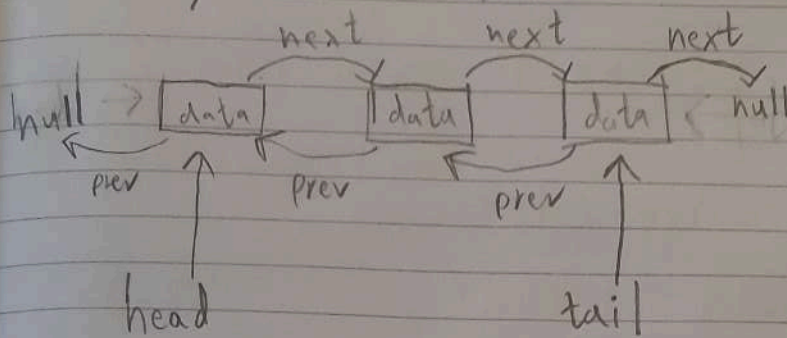 next next next
null data data data null
prev prev prev
head tail